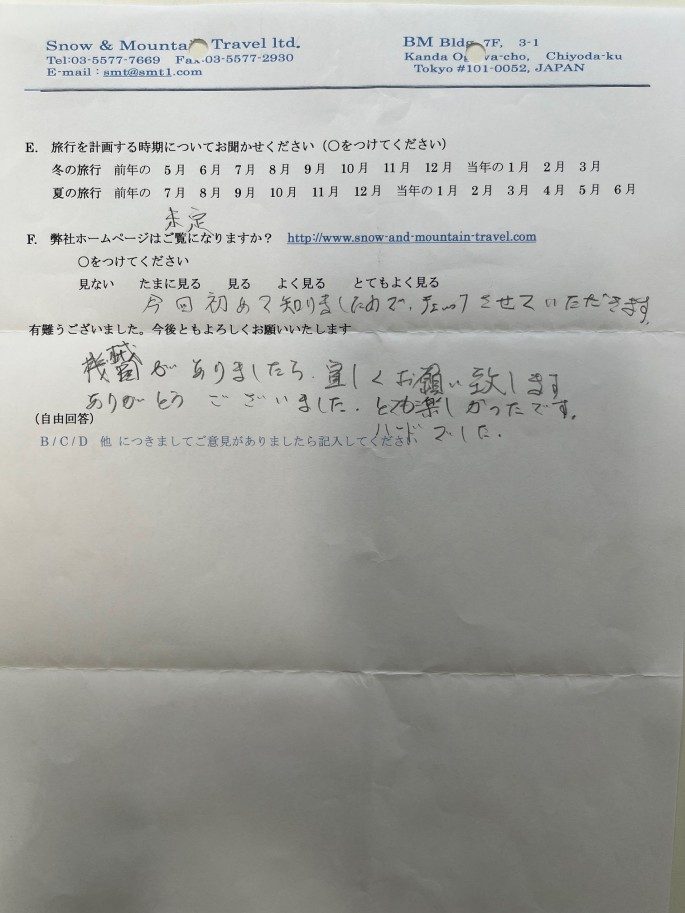 Snow & Mountain Travel ltd.
Tel:03-5577-7669 Fax:03-5577-2930
E-mail：smt@smt1.com
BM Bldg 7F, 3-1
Kanda Ogawa-cho, Chiyoda-ku
Tokyo #101-0052, JAPAN
E. 旅行を計画する時期についてお聞かせください（○をつけてください）
冬の旅行 前年の 5月 6月 7月 8月 9月 10月 11月 12月 当年の1月 2月 3月
夏の旅行 前年の 7月 8月 9月 10月 11月 12月 当年の1月 2月 3月 4月 5月 6月
未定
F. 弊社ホームページはご覧になりますか？ http://www.snow-and-mountain-travel.com
○をつけてください
見ない たまに見る 見る よく見る とてもよく見る
今回初めて知りましたので、チェックさせていただきます。
有難うございました。今後ともよろしくお願いいたします
機会がありましたら、宜しくお願い致します
ありがとうございました。とても楽しかったです。
（自由回答）
ハードでした。
B/C/D 他 につきましてご意見がありましたら記入してください